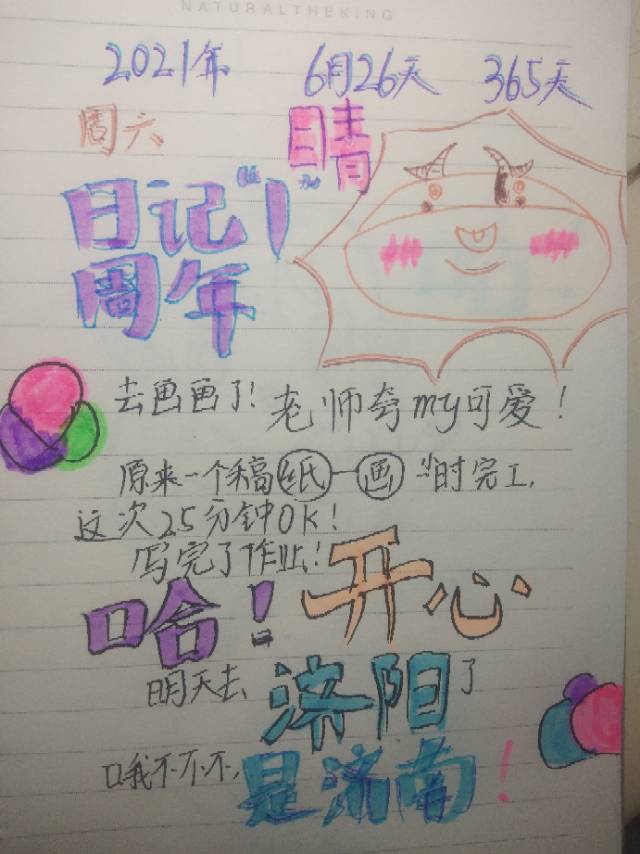 NATURALTHEKING
2021年 6月26天 365天
周六 晴
日记"1"
周年
去画画了! 老师夸my可爱!
原来一个稿纸一画 小时完工,
这次25分钟OK!
写完了作业!
哈! 开心
明天去 济阳了
哦不不不, 是济南!